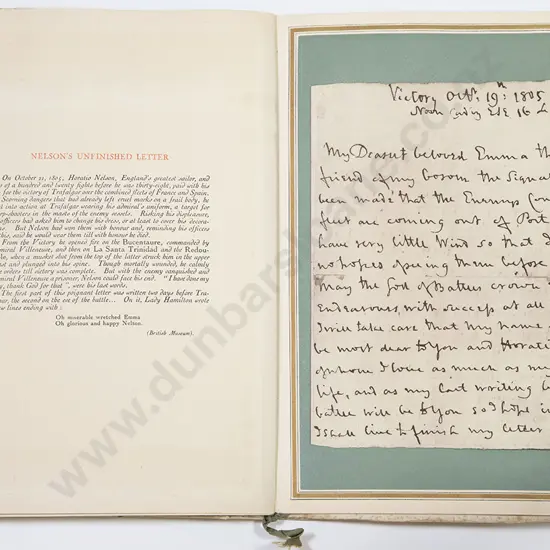 NELSON'S UNFINISHED LETTER
On October 21, 1805, Horatio Nelson, England's greatest sailor, and
of a hundred and twenty fights before he was thirty-eight, paid with his
for the victory of Trafalgar over the combined fleets of France and Spain.
Scorning dangers that had already left cruel marks on a frail body, he
into action at Trafalgar wearing his admiral's uniform, a target for
sharp-shooters in the masts of the enemy vessels. Risking his displeasure,
officers had asked him to change his dress, or at least to cover his decora-
But Nelson had won them with honour and, reminding his officers
this, said he would wear them till with honour he died.
From the Victory he opened fire on the Bucentaure, commanded by
Admiral Villeneuve, and then on La Santa Trinidad and the Redou-
when a musket shot from the top of the latter struck him in the upper
and plunged into his spine. Though mortally wounded, he calmly
orders till victory was complete. But with the enemy vanquished and
Admiral Villeneuve a prisoner, Nelson could face his end. "I have done my
thank God for that", were his last words.
The first part of this poignant letter was written two days before Tra-
the second on the eve of the battle... On it, Lady Hamilton wrote
lines ending with:
Oh miserable wretched Emma
Oh glorious and happy Nelson.
(British Museum).
Victory Octr. 19th: 1805
Noon Cadiz ESE 16 L
My Dearest beloved Emma the
friend of my bosom the Signal
been made that the Enemys Com
fleet are coming out of Port
have very little Wind so that
no hopes of seeing them before
May the God of Battles crown
Endeavours with success at all
I will take care that my name
be most dear to You and Horatia
of whom I love as much as my
life, and as my last writing be
battle will be to You so I hope in
I shall live to finish my letter
www.dunbarsloane.co.nz